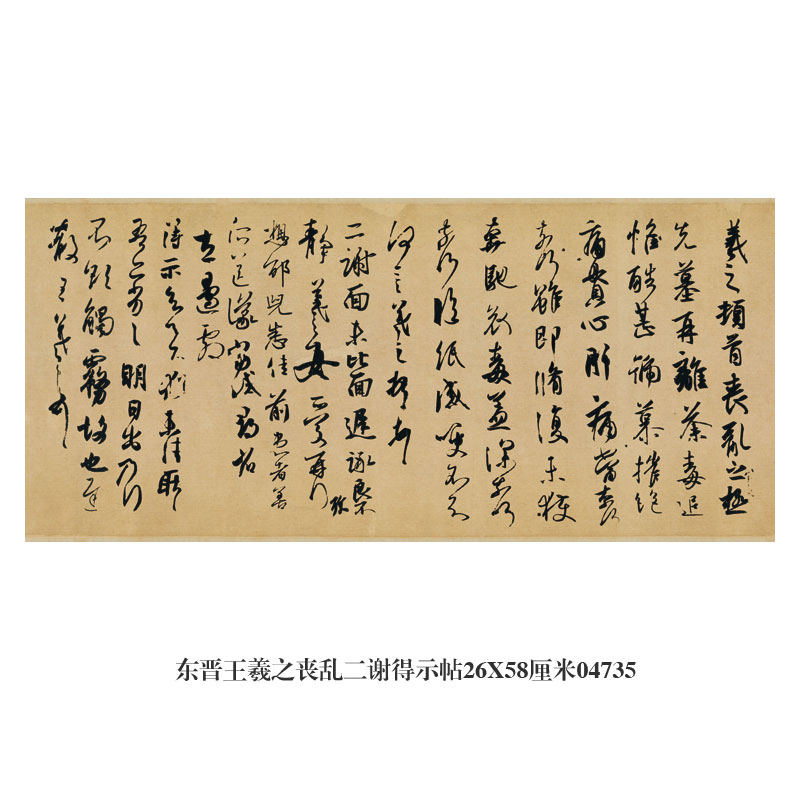 羲之頓首喪亂之極
先墓再離荼毒追
惟酷甚號慕摧絶
痛貫心肝痛當奈何
奈何雖即脩復未獲
奔馳哀毒益深奈何
奈何臨紙感哽不知
何言羲之頓首頓首
二謝面未比面遲詠良不
静羲之女愛再拜
想邰兒悉佳前患者善
所送議當試尋省
左邊劇
得示知足下猶未佳耿耿
吾亦劣劣明日出乃行
不欲觸霧故也遲
散王羲之頓首
东晋王羲之丧乱二谢得示帖26X58厘米04735